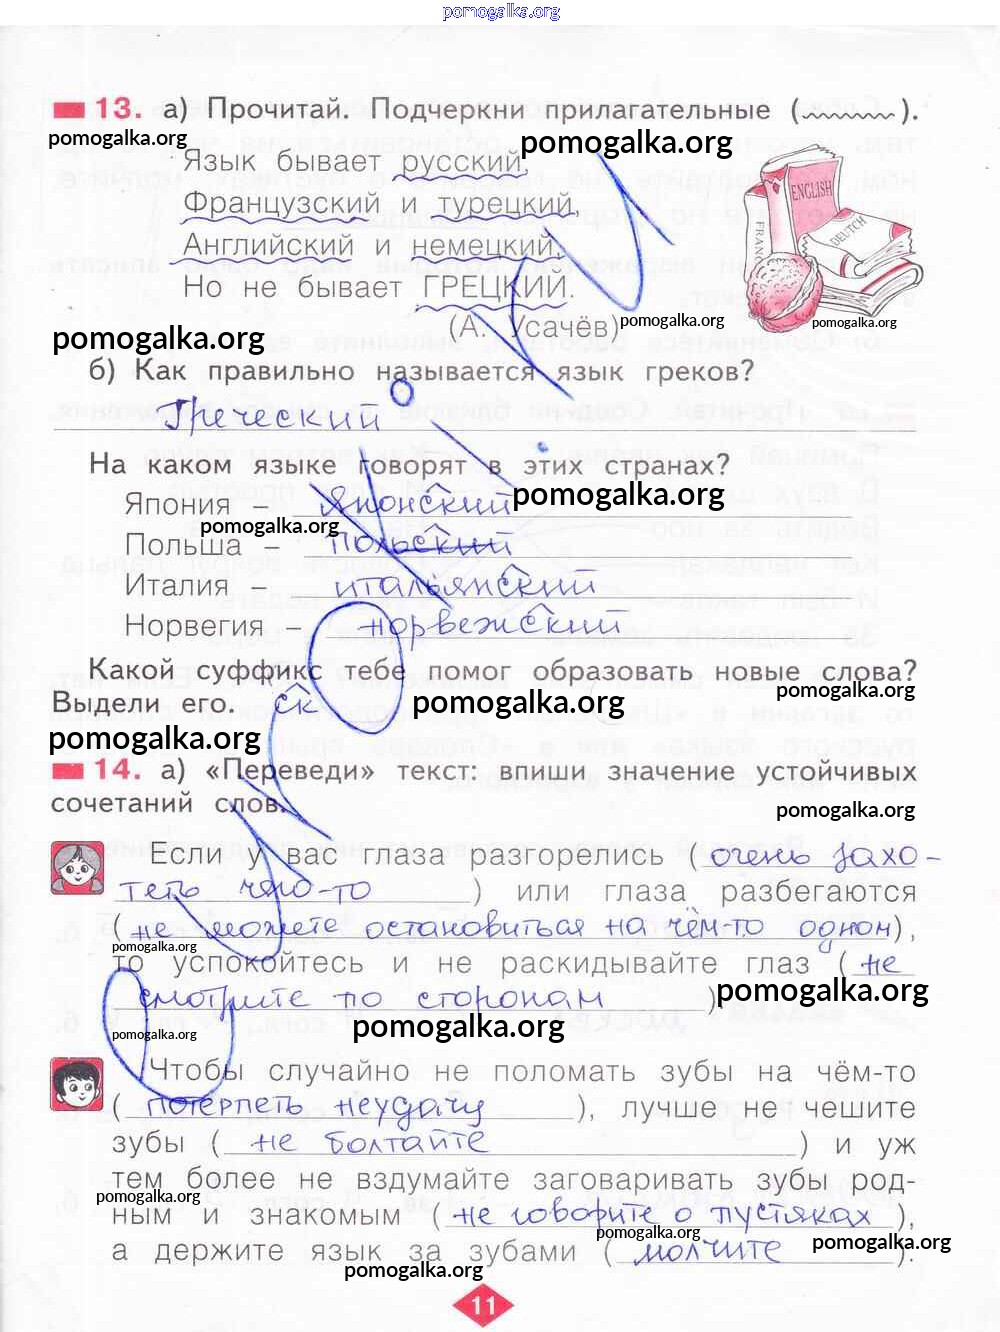 pomogalka.org
13. а) Прочитай. Подчеркни прилагательные ( ).
pomogalka.org
pomogalka.org
Язык бывает русский,
Французский и турецкий,
Английский и немецкий,
Но не бывает ГРЕЦКИЙ.
ENGLISH
DEUTCH
(А. Усачёв)
pomogalka.org
pomogalka.org
pomogalka.org
б) Как правильно называется язык греков?
Греческий
На каком языке говорят в этих странах?
Япония – японский
pomogalka.org
pomogalka.org
Польша – польский
Италия – итальянский
Норвегия – норвежский
Какой суффикс тебе помог образовать новые слова?
pomogalka.org
Выдели его. ск
pomogalka.org
pomogalka.org
14. а) «Переведи» текст: впиши значение устойчивых
сочетаний слов.
pomogalka.org
Если у вас глаза разгорелись (очень захо-
теть чего-то) или глаза разбегаются
(не можете остановиться на чём-то одном),
pomogalka.org
то успокойтесь и не раскидывайте глаз (не
смотрите по сторонам)
pomogalka.org
pomogalka.org
pomogalka.org
Чтобы случайно не поломать зубы на чём-то
(потерпеть неудачу), лучше не чешите
зубы (не болтайте) и уж
тем более не вздумайте заговаривать зубы род-
pomogalka.org
ным и знакомым (не говорите о пустяках),
pomogalka.org
pomogalka.org
а держите язык за зубами (молчите).
pomogalka.org
11